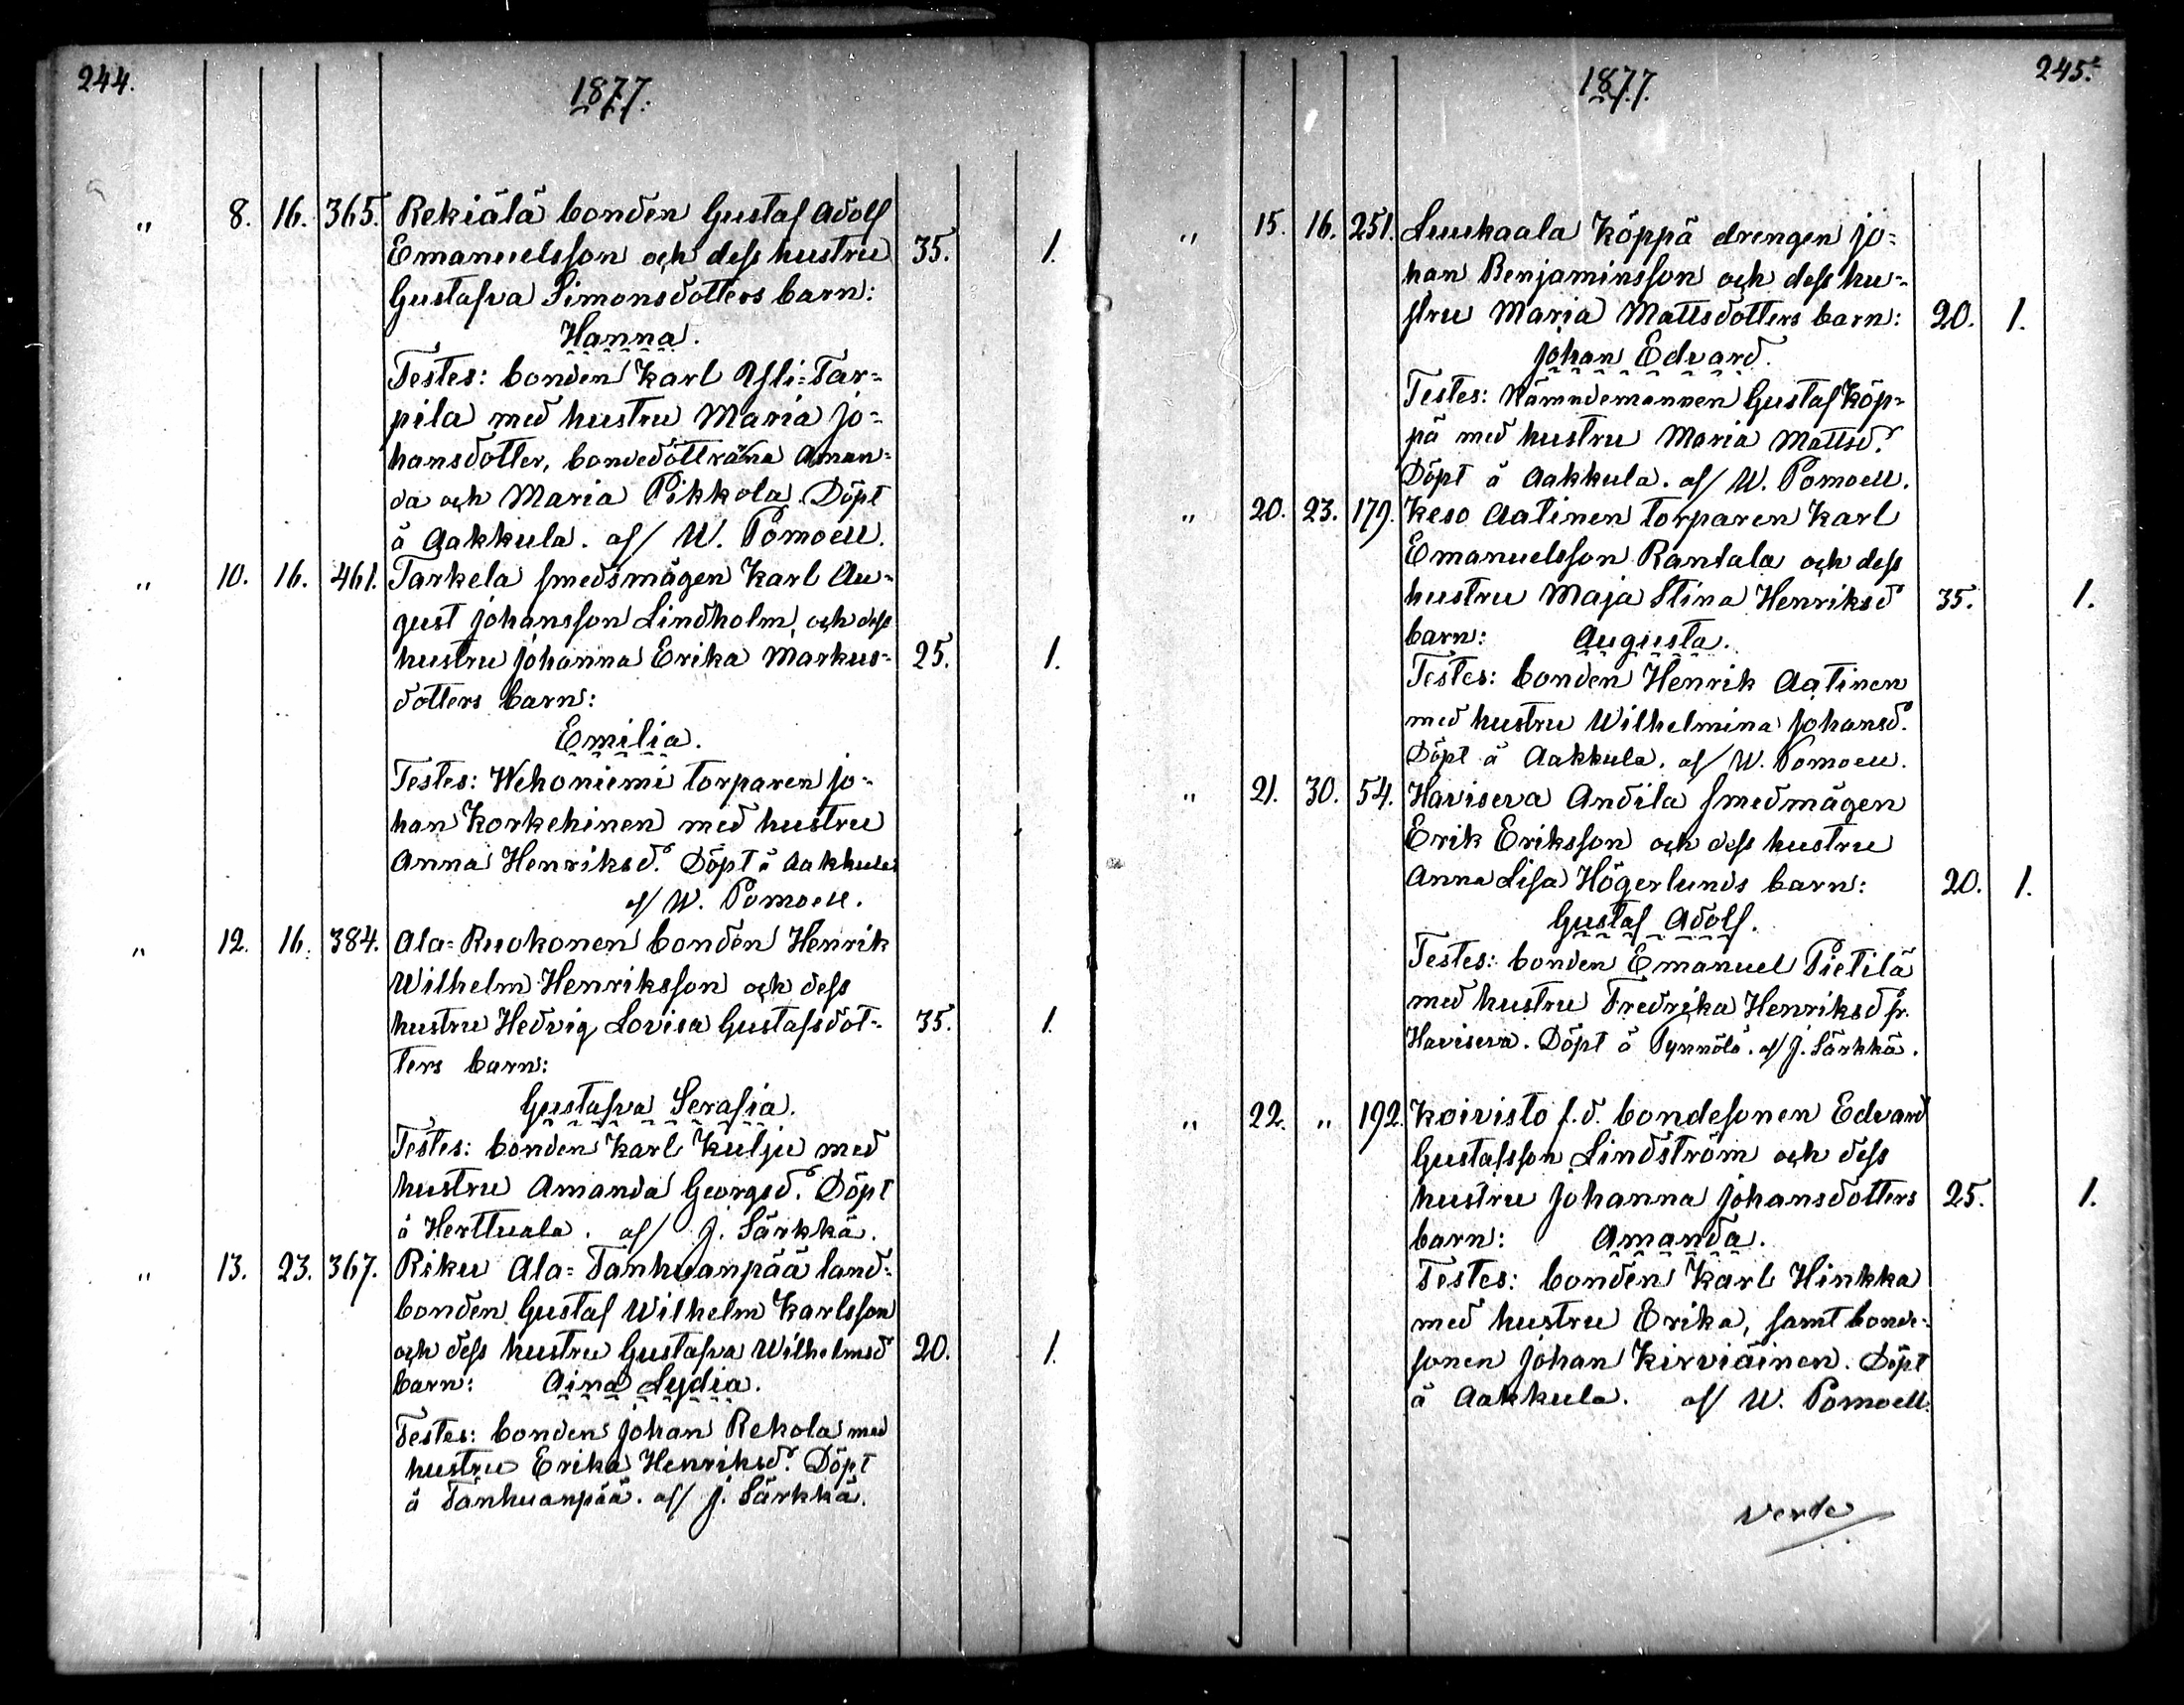 244.
1877.
" 8. 16. 365. Rekiälä bonden Gustaf Adolf
Emanuelsson och dess hustru 35. 1.
Gustafva Simonsdotters barn:
Hanna.
Testes: bonden Karl Yli=Tar=
pila med hustru Maria Jo=
hansdotter, bondedöttrarna Aman=
da och Maria Pikkola. Döpt
å Aakkula. af/ W. Pomoell.
" 10. 16. 461. Tarkela smedsmågen Karl Au=
gust Johansson Lindholm, och dess
hustru Johanna Erika Markus= 25. 1.
dotters barn:
Emilia.
Testes: Wehoniemi torparen Jo=
han Korkehinen med hustru
Anna Henriksdr. Döpt å Aakkula
af/ W. Pomoell.
" 12. 16. 384. Ala=Ruokonen bonden Henrik
Wilhelm Henriksson och dess
hustru Hedvig Lovisa Gustafsdot= 35. 1.
ters barn:
Gustafva Serafia.
Testes: bonden Karl Kulju med
hustru Amanda Georgsdr. Döpt
å Herttuala. af/ J. Särkkä.
" 13. 23. 367. Riku Ala=Tanhuanpää land=
bonden Gustaf Wilhelm Karlsson
och dess hustru Gustafva Wilhelmsd 20. 1.
barn: Aina Lydia.
Testes: bonden Johan Rekola med
hustru Erika Henriksdr. Döpt
å Tanhuanpää. af/ J. Särkkä.
245.
1877.
" 15. 16. 251. Luukaala Köppä drengen Jo=
han Benjaminsson och dess hu=
stru Maria Mattsdotters barn: 20. 1.
Johan Edvard.
Testes: Nämndemannen Gustaf Köp=
pä med hustru Maria Mattsdr.
Döpt å Aakkula. af/ W. Pomoell.
" 20. 23. 179. Keso Aatinen torparen Karl
Emanuelsson Rantala och dess
hustru Maja Stina Henriksd 35. 1.
barn: Augusta.
Testes: bonden Henrik Aatinen
med hustru Wilhelmina Johansdr.
Döpt å Aakkula. af/ W. Pomoell.
" 21. 30. 54. Haviseva Andila smedmågen
Erik Eriksson och dess hustru
Anna Lisa Högerlunds barn: 20. 1.
Gustaf Adolf.
Testes: bonden Emanuel Pietilä
med hustru Fredrika Henriksd fr.
Haviseva. Döpt å Pynnölä. af/ J. Särkkä.
" 22. " 192. Koivisto f.d. bondesonen Edvard
Gustafsson Lindström och dess
hustru Johanna Johansdotters 25. 1.
barn: Amanda.
Testes: bonden Karl Hinkka
med hustru Erika, samt bonde=
sonen Johan Kirviäinen. Döpt
å Aakkula. af/ W. Pomoell.
verte